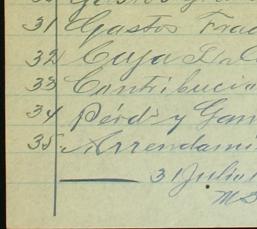 31 Gastos Frac
32 Caja
33 Contribucio
34 Pérd. y Gan
35 Arrendami
31 Julio